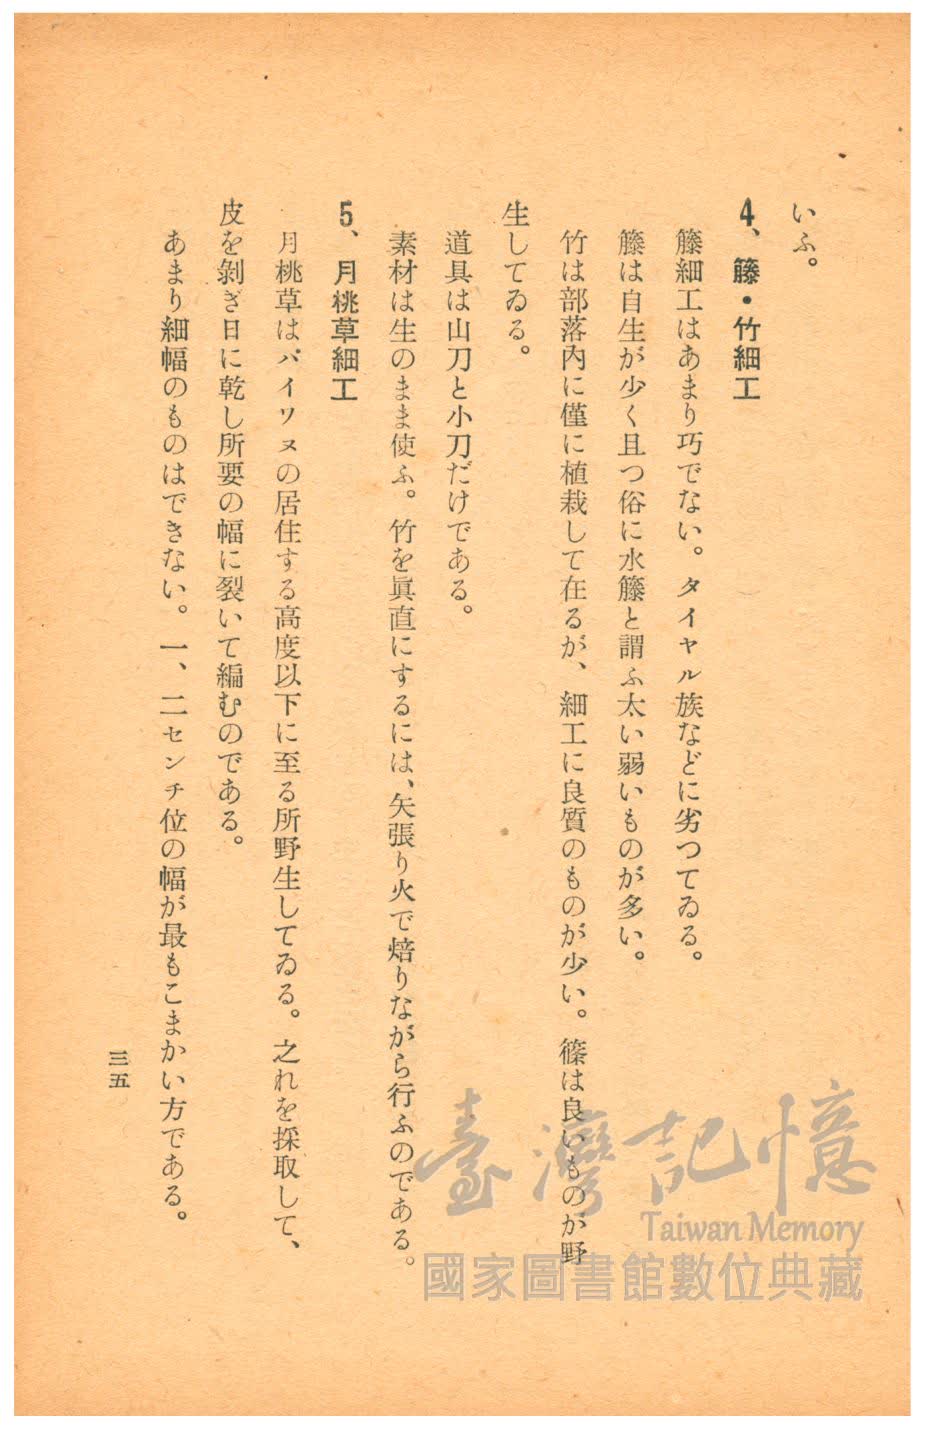 いふ。
4、籐・竹細工
籐細工はあまり巧でない。タイヤル族などに劣つてゐる。
籐は自生が少く且つ俗に水籐と謂ふ太い弱いものが多い。
竹は部落內に僅に植栽して在るが、細工に良質のものが少い。篠は良いものが野
生してゐる。
道具は山刀と小刀だけである。
素材は生のまま使ふ。竹を眞直にするには、矢張り火で焙りながら行ふのである。
5、月桃草細工
月桃草はパイワヌの居住する高度以下に至る所野生してゐる。之れを採取して、
皮を剝ぎ日に乾し所要の幅に裂いて編むのである。
あまり細幅のものはできない。一、二センチ位の幅が最もこまかい方である。
三五
臺灣記憶
Taiwan Memory
國家圖書館數位典藏